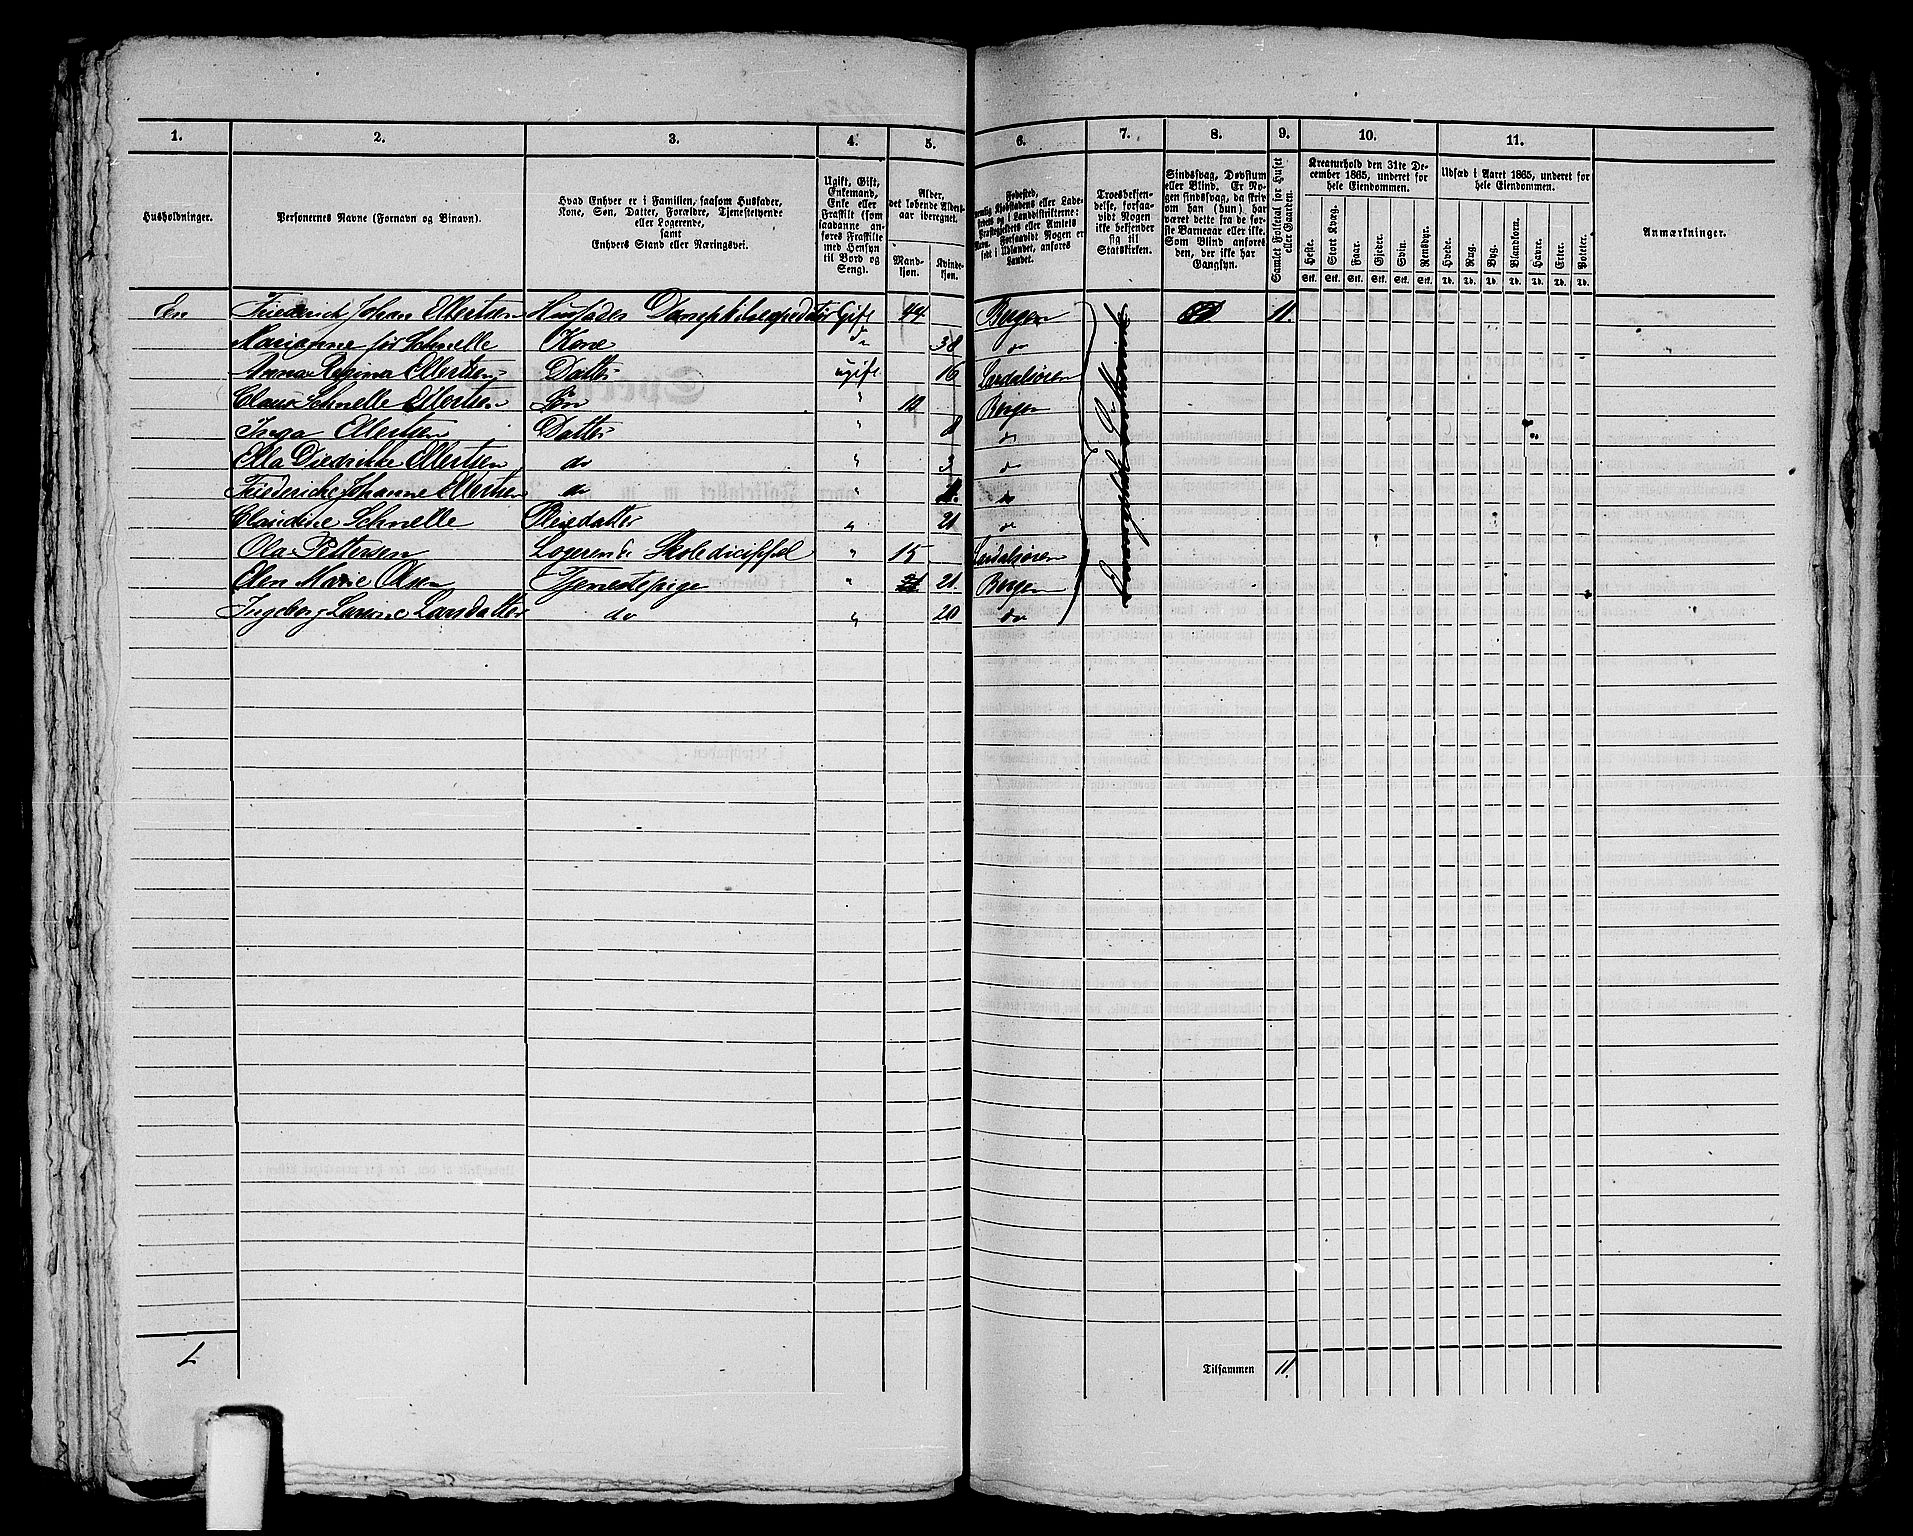 1. 2. 3. 4. 5. 6. 7. 8. 9. 10. 11.
Husholdninger.
Personernes Navne (Fornavn og Binavn).
Hvad Enhver er i Familien, saasom Husfader,
Kone, Søn, Datter, Forældre, Tjenestetyende
eller Logerende,
samt
Enhvers Stand eller Næringsvei.
Ugift, Gift,
Enkemand,
Enke eller
Fraskilt (som
saadanne an-
føres Fraskilte
med Hensyn
til Bord og
Seng).
Alder,
det løbende Alders-
aar iberegnet.
Mand-
kjøn.
Kvinde-
kjøn.
Fødested,
nemlig Kjøbstadens eller Lade-
stedets og i Landdistrikterne:
Præstegjeldets eller Amtets
Navn. Forsaavidt Nogen er
født i Udlandet, anføres
Landet.
Troesbekjen-
delse, forsaa-
vidt Nogen
ikke bekjender
sig til
Statskirken.
Sindssvag, Døvstum
eller Blind. Er No-
gen sindssvag, da skriv
om han (hun) har
været dette fra de før-
ste Barneaar eller ikke.
Som Blind anføres
den, der ikke har
Gangsyn.
Samlet Folketal for Huset
eller Gaarden.
Kreaturhold den 31te De-
cember 1865, underet for
hele Eiendommen.
Heste. Stort Kvæg. Faar. Gjeder. Svin. Rensdyr.
Stk. Stk. Stk. Stk. Stk. Stk.
Udsæd i Aaret 1865, underet for
hele Eiendommen.
Hvede. Rug. Byg. Blandkorn. Havre. Erter. Poteter.
Td. Td. Td. Td. Td. Td. Td.
Anmærkninger.
En Friederich Johan Ellertsen Husfader Dampskibsexpeditør Gift 44 Bergen 11.
Marianne før Schnelle Kone do 38 do
Anna Regina Ellertsen Datter ugift 16 Lærdalsøren
Claus Schnelle Ellertsen Søn " Bergen
Inga Ellertsen Datter " 8 do
Ella Diedrikke Ellertsen do " do
Friederiche Johanne Ellertsen do " do
Claudine Schnelle Pleiedatter " 21 do
Ola Pettersen Logerende Skolediscippel " 15 Lærdalsøren
Elen Marie Olsen Tjenestepige " 21 21. Bergen
Ingeborg Lavine Larsdatter do " 20 do
1
Tilsammen 11.